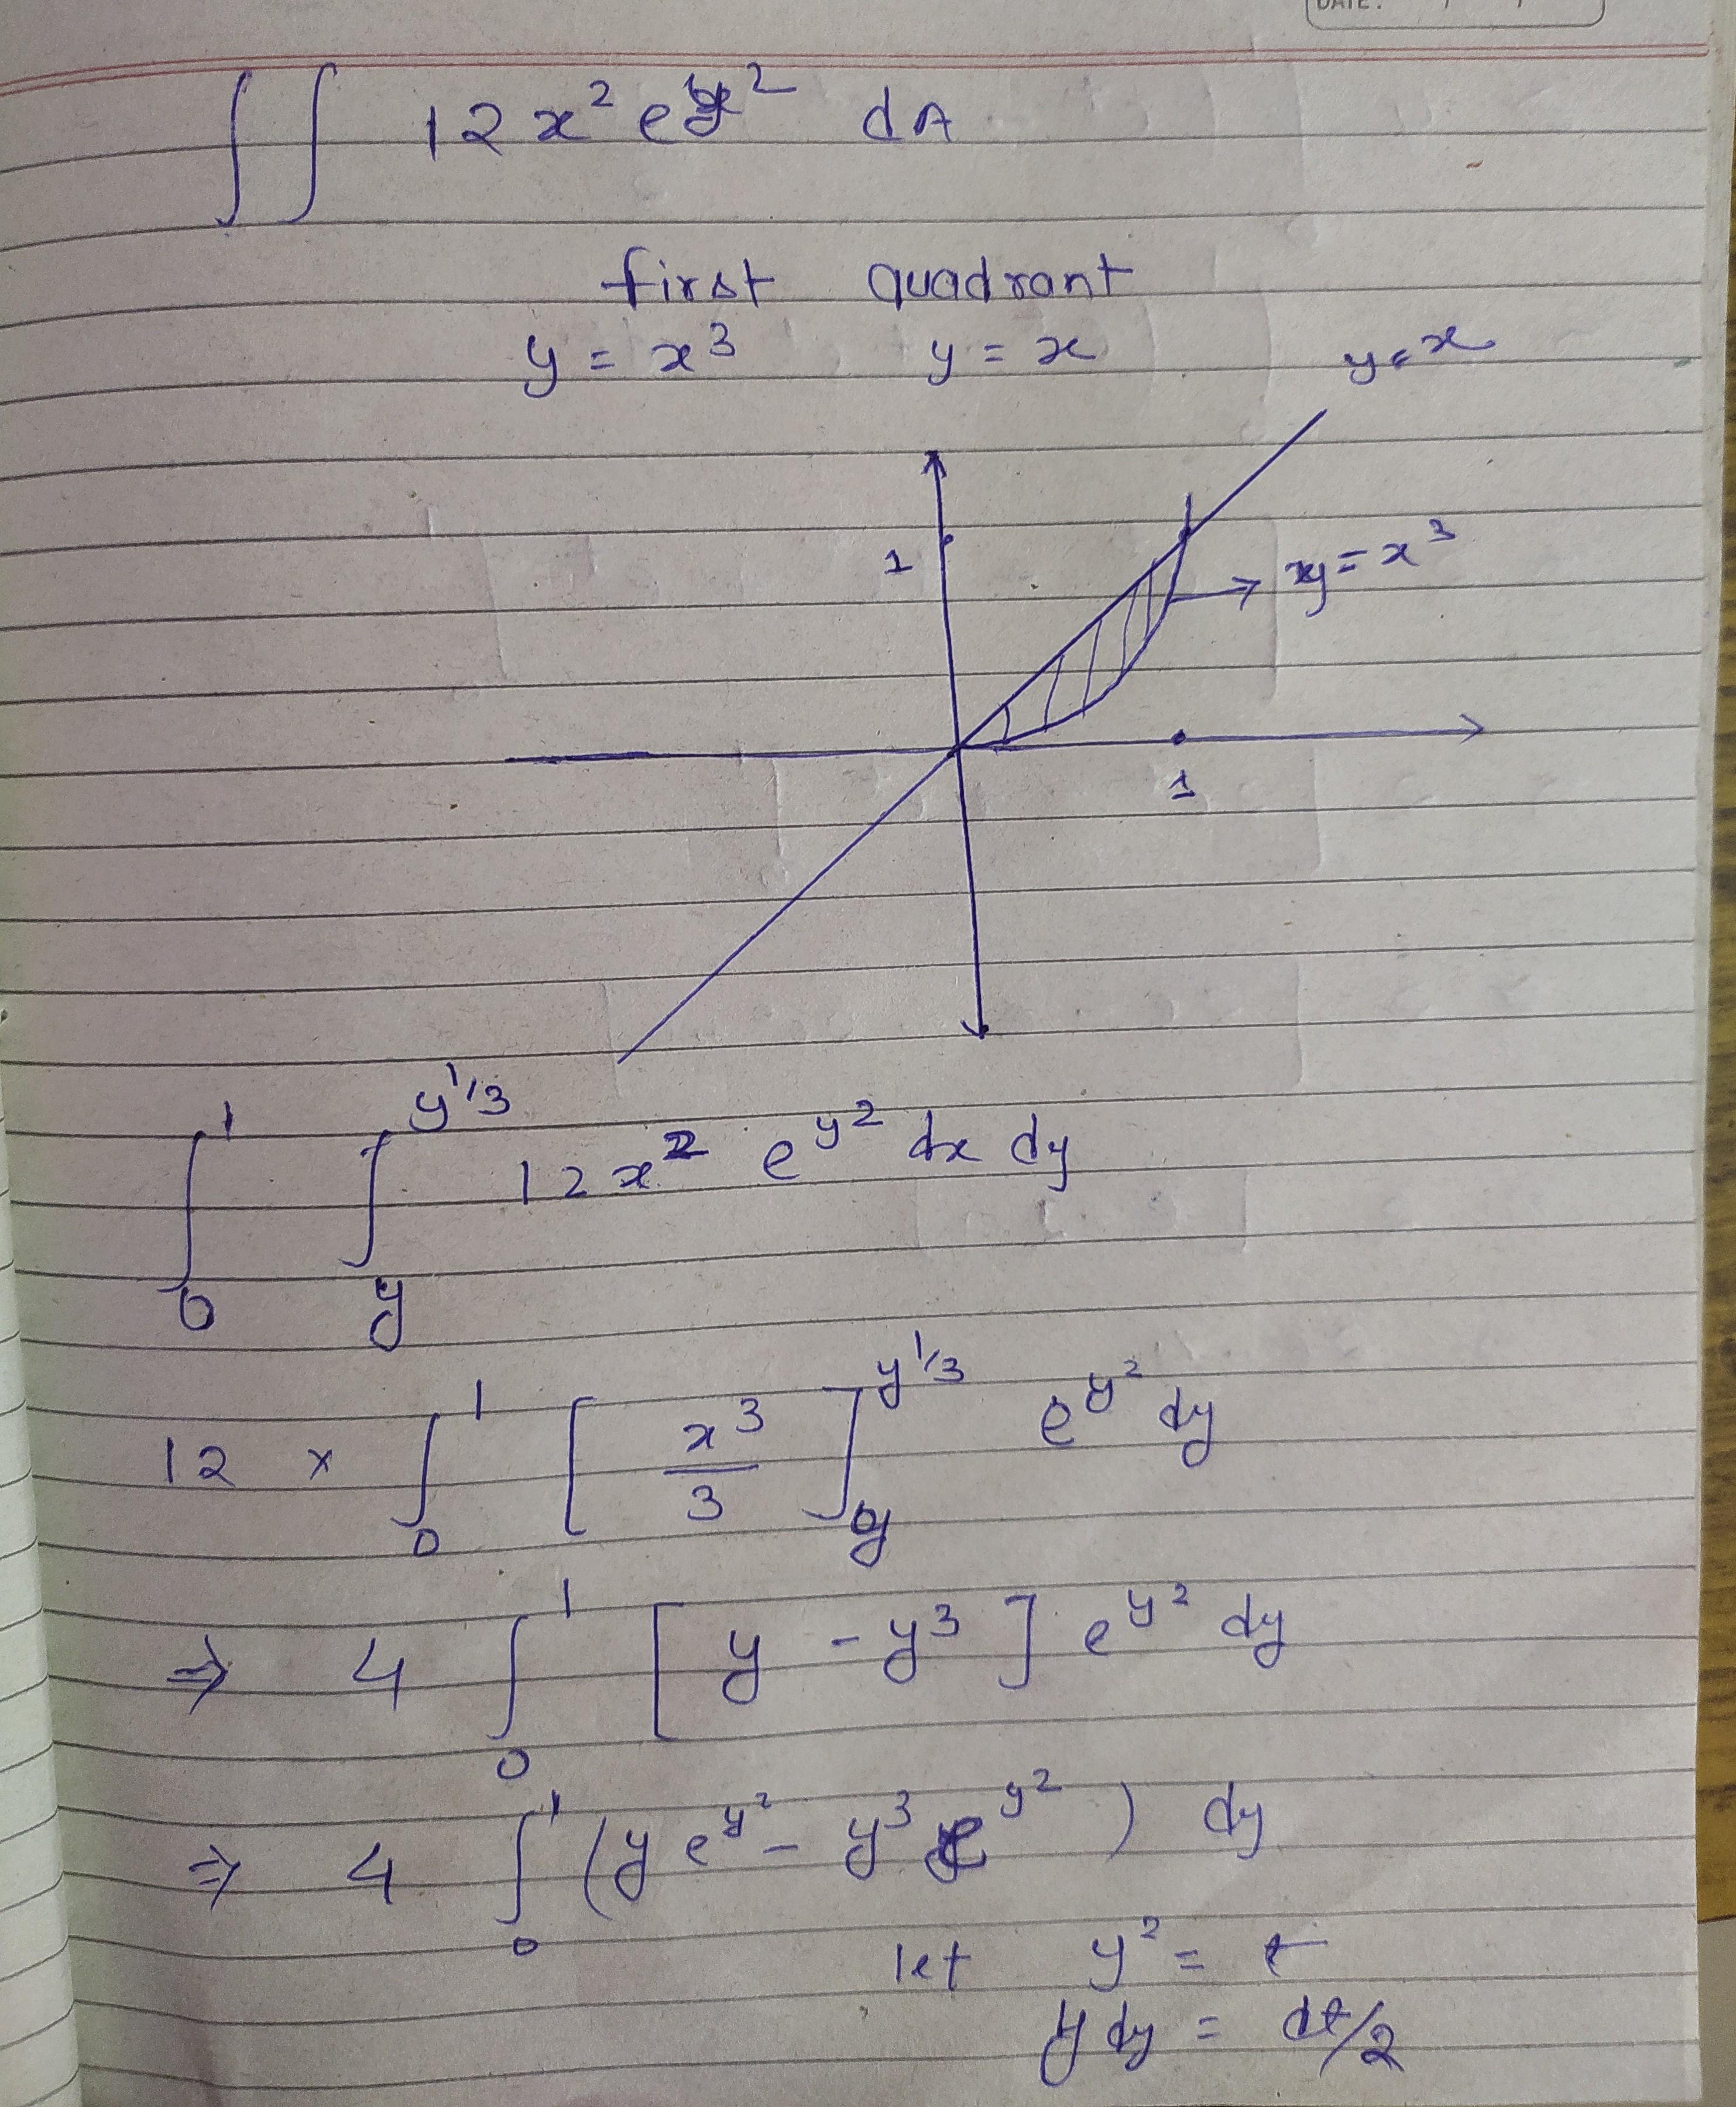 DATE: / /
∫∫ 12x² e^y² dA
first quadrant
y = x³ y = x
y = x
1
y = x³
1
∫₀¹ ∫_y^(y^1/3) 12x² e^y² dx dy
12 × ∫₀¹ [x³/3]_y^(y^1/3) e^y² dy
⇒ 4 ∫₀¹ [y - y³] e^y² dy
⇒ 4 ∫₀¹ (y e^y² - y³ e^y²) dy
let y² = t
y dy = dt/2